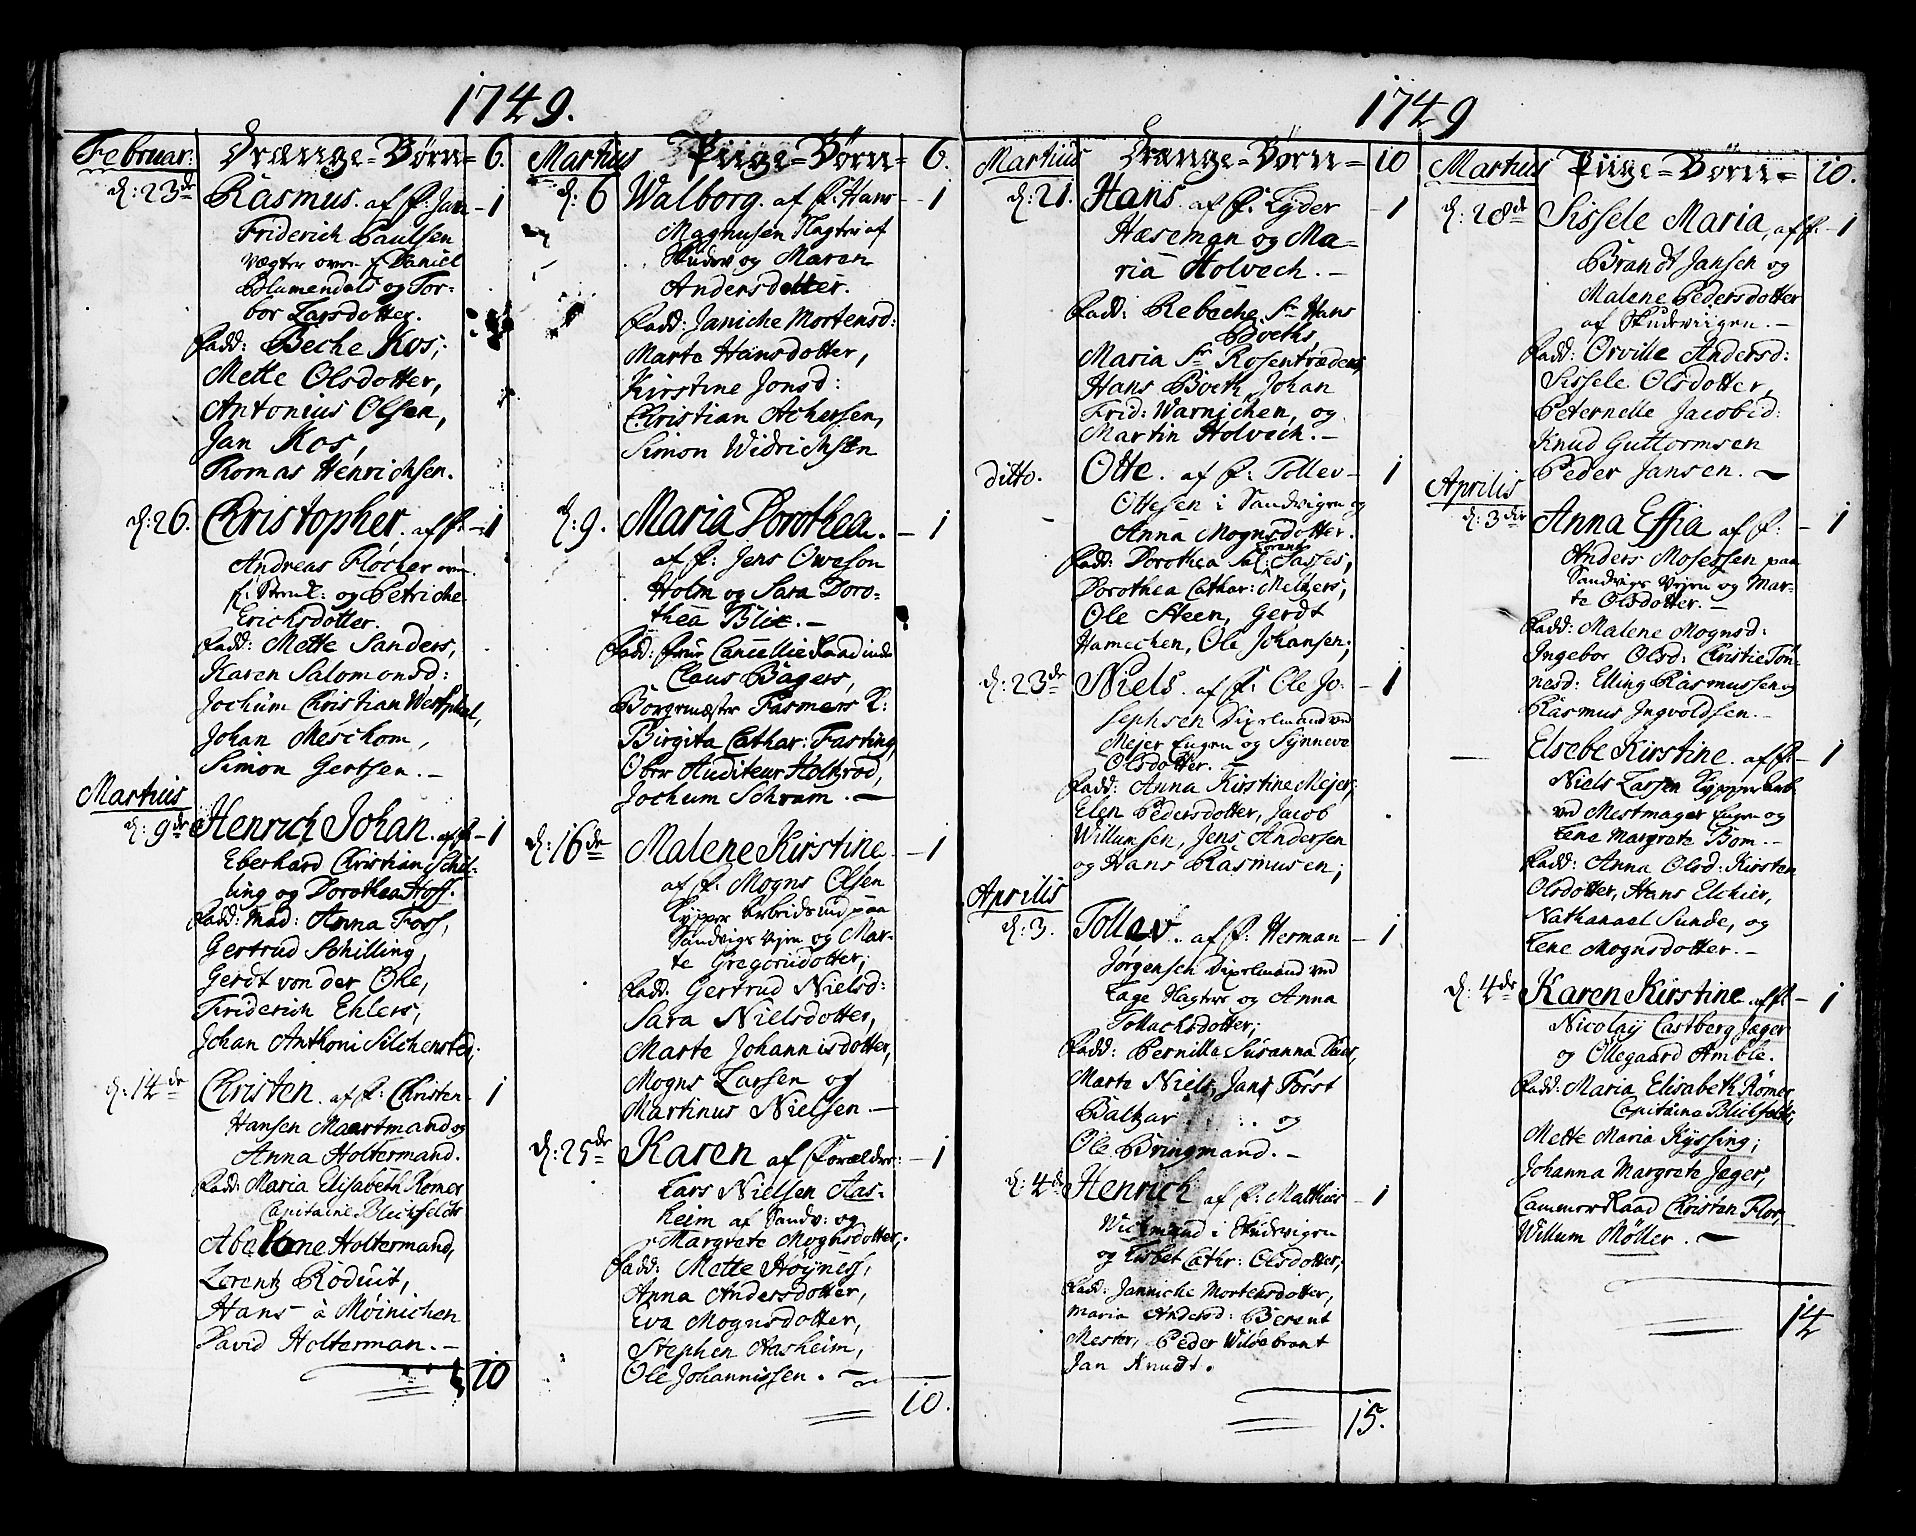 1749.
Februar: Drænge=Børn= 6.
d: 23de Rasmus. af f: Jan — 1
Friderich Paulsen
Vægter over f. Daniel
Blumendals og Tor=
bor Larsdotter.
Fadd: Beche Kos;
Mette Olsdotter,
Antonius Olsen,
Jan Kos,
Romas Henrichsen.
d: 26. Christopher. af f: — 1
Andreas Fløcher
og Petriche
Erichsdotter.
Fadd: Mette Sanders,
Karen Salomonsd:
Jochum Christian Westphal,
Johan Meschom,
Simon Gertsen. —
Martius
d: 9de Henrich Johan. af f: — 1
Eberhard Christian Schil=
ling og Dorothea Hoff.
Fadd: Mad: Anna Foss,
Gertrud Schilling,
Gerdt von der Ohe,
Friderich Ehlers,
Johan Anthoni Silchensted;
d: 14de Christen. af f: Christen 1
Hansen Maartmand og
Anna Holtermand.
Fadd: Maria Elisabeth Rømer
Capitaine Blichfeldts
Abelone Holtermand,
Lorentz Roduit,
Hans à Møinichen
David Holterman. —
10
Martius Piige=Børn= 6.
d: 6 Walborg. af f: Hans — 1
Magnusen Flagtrer af
Skudev: og Maren
Andersdotter.
Fadd: Janiche Mortensd:
Marte Hansdotter,
Kirstine Jonsd:
Christian Achersen,
Simon Widrichsen
d: 9. Maria Dorothea. — 1
af f: Jens Oweson
Holm og Sara Doro=
thea Blix. —
Fadd: Frue Cancellie Raadinde
Claus Bagers,
Borgemæster Fasmers K:
Birgita Cathar: Fasting,
Ober Auditeur Holtrod,
Jochum Schram. —
d: 16de Malene Kirstine — 1
af f: Mogns Olsen
Kypper Arbeidsind paa
Sandvigs Vejen og Mar=
te Gregoriidotter;
Fadd: Gertrud Nielsd:
Sara Nielsdotter,
Marte Johannisdotter,
Mogns Larsen og
Martinus Nielsen —
d: 25de Karen af Forælder: — 1
Lars Nielsen Aas=
heim af Sandv: og
Margrete Mognsdotter;
Fadd: Mette Høyness,
Anna Andersdotter,
Eva Mognsdotter,
Stephen Aasheim,
Ole Johannissen. —
10.
1749
Martius Drænge=Børn= 10
d: 21. Hans. af f: Lyder — 1
Hæseman og Ma=
ria Holvech. —
Fadd: Rebeche Sr Hans
Boeths,
Maria Sr Rosentræders,
Hans Boeth, Johan
Frid: Warnichen, og
Martin Holvech. —
ditto. Otte. af f: Tollev — 1
Ottesen i Sandvigen og
Anna Mognsdotter.
Fadd: Dorothea Sal: Lorens Sasses,
Dorothea Cathar: Meltzers,
Ole Steen, Gerdt
Hamechen, Ole Johansen;
d: 23de Niels. af f: Ole Jo= — 1
sephsen Dixelmand ved
Mejer Eugen og Synneve
Olsdotter. —
Fadd: Anna Kirstine Mejer,
Elen Pedersdotter, Jacob
Willumsen, Jens Andersen
og Hans Rasmusen;
Aprilis
d: 3. Tollev. af f: Herman — 1
Jørgensen Dixelmand ved
Lage og Anna
Tollachsdotter;
Fadd: Pernilla Susanna Dans,
Marte Niels, Jans Torst
Baltzar og
Ole Bringmand. —
d: 4de Henrich af f: Matthias — 1
Wichmand i Skudevigen
og Lisbet Cathr: Olsdotter;
Fadd: Jannicke Mortensdotter,
Maria Andersd: Berent
Mester, Peder Wildebrant
Jan Knudt.
15.
Martius Piige=Børn= 10.
d: 28de Sissele Maria, af f: — 1
Brandt Jansen og
Malene Pedersdotter
af Skudeviigen. —
Fadd: Orville Andersd:
Sissele Olsdotter,
Peternelle Jacobsd:
Knud Guttormsen
Peder Jansen. —
Aprilis
d: 3die Anna Effia af f: — 1
Anders Mosessen paa
Sandvigs Vejen og Mar=
te Olsdotter. —
Fadd: Malene Mognsd:
Ingebor Olsd: Christie Tøn=
nesd: Elling Rasmussen og
Rasmus Ingvoldsen. —
— Elsebe Kirstine. af f: — 1
Niels Larsen Kypper Arb.
ved Mestmager Eugen og
Lene Margrete Bom. —
Fadd: Anna Olsd: Kirsten
Olsdotter, Hans Elchier,
Nathanael Sunde, og
Lene Mognsdotter. —
d: 4de Karen Kirstine af f: — 1
Nicolaÿ Castberg Jæger
og Ollegaard Amble.
Fadd: Maria Elisabeth Rømer
Capitaine Blichfeldts,
Mette Maria Kyssing;
Johanna Margrete Jæger,
Cammer Raad Christen Flor,
Willum Møller. —
14